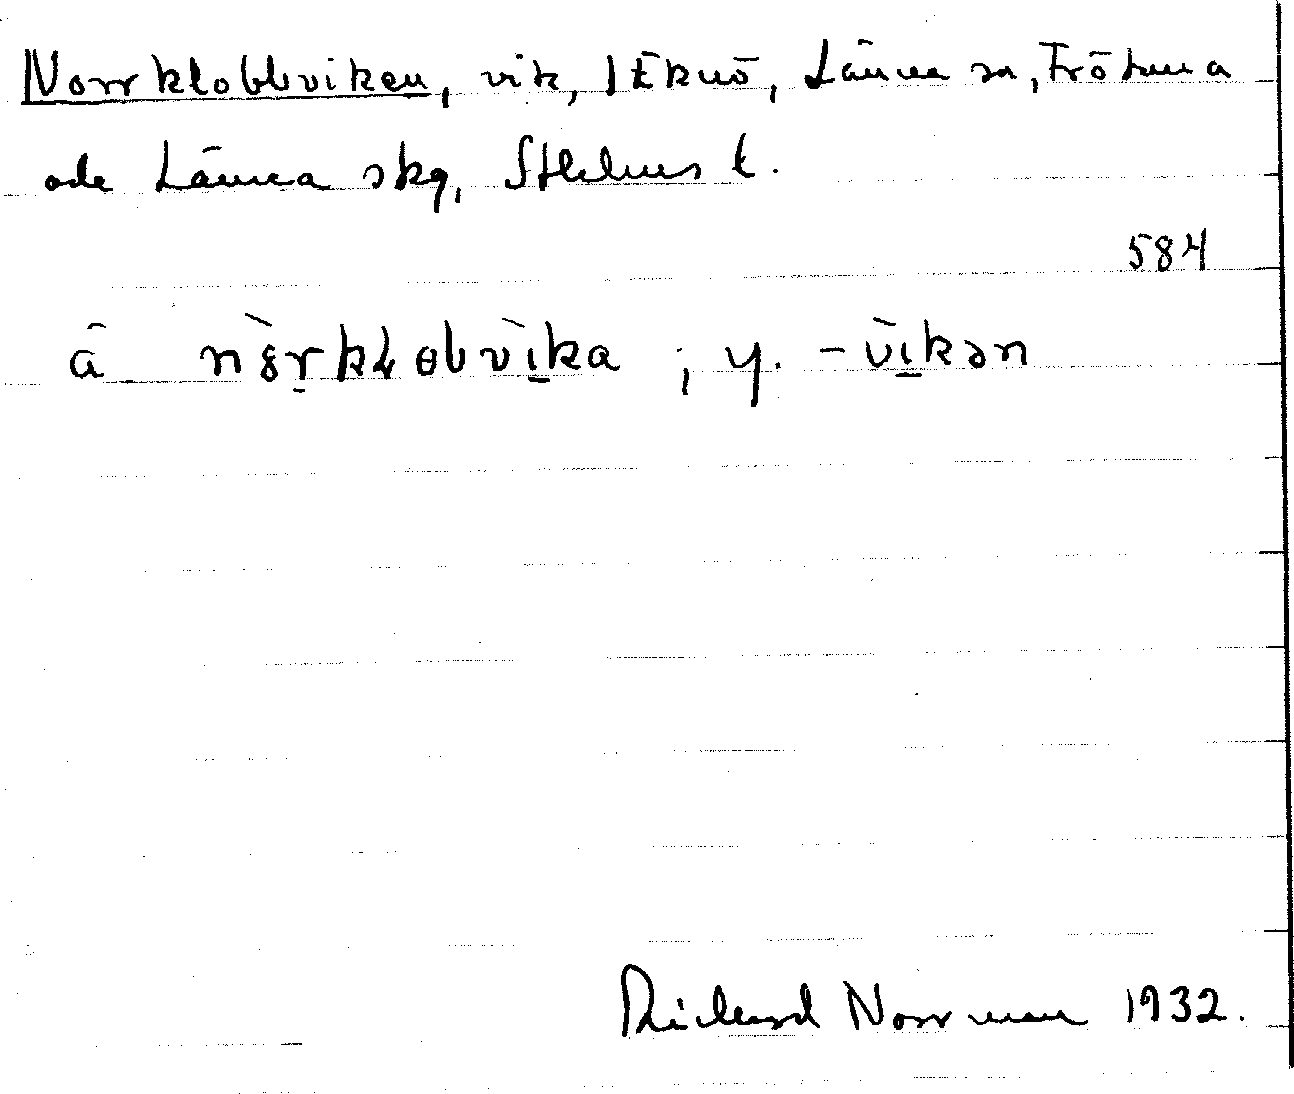 Norrklobbviken, vik, Itknö, Länna sn, Frötuna
ode Länna skg, Sthlms l.
584
å nörkłobvika ; y. -vikən
Rickard Norrman 1932.